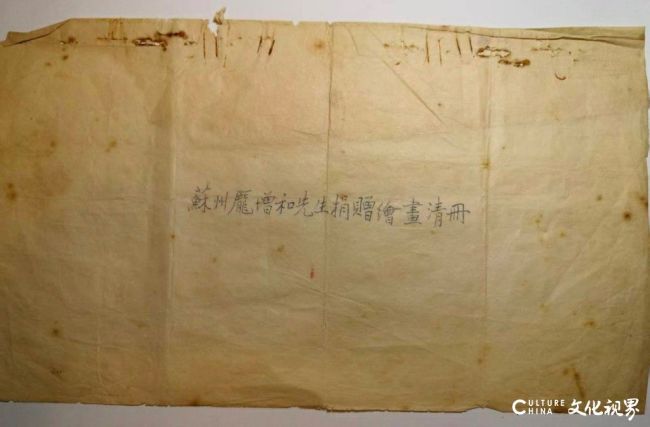 蘇州龐增和先生捐贈繪畫清冊
CULTURE
CHINA 文化视界